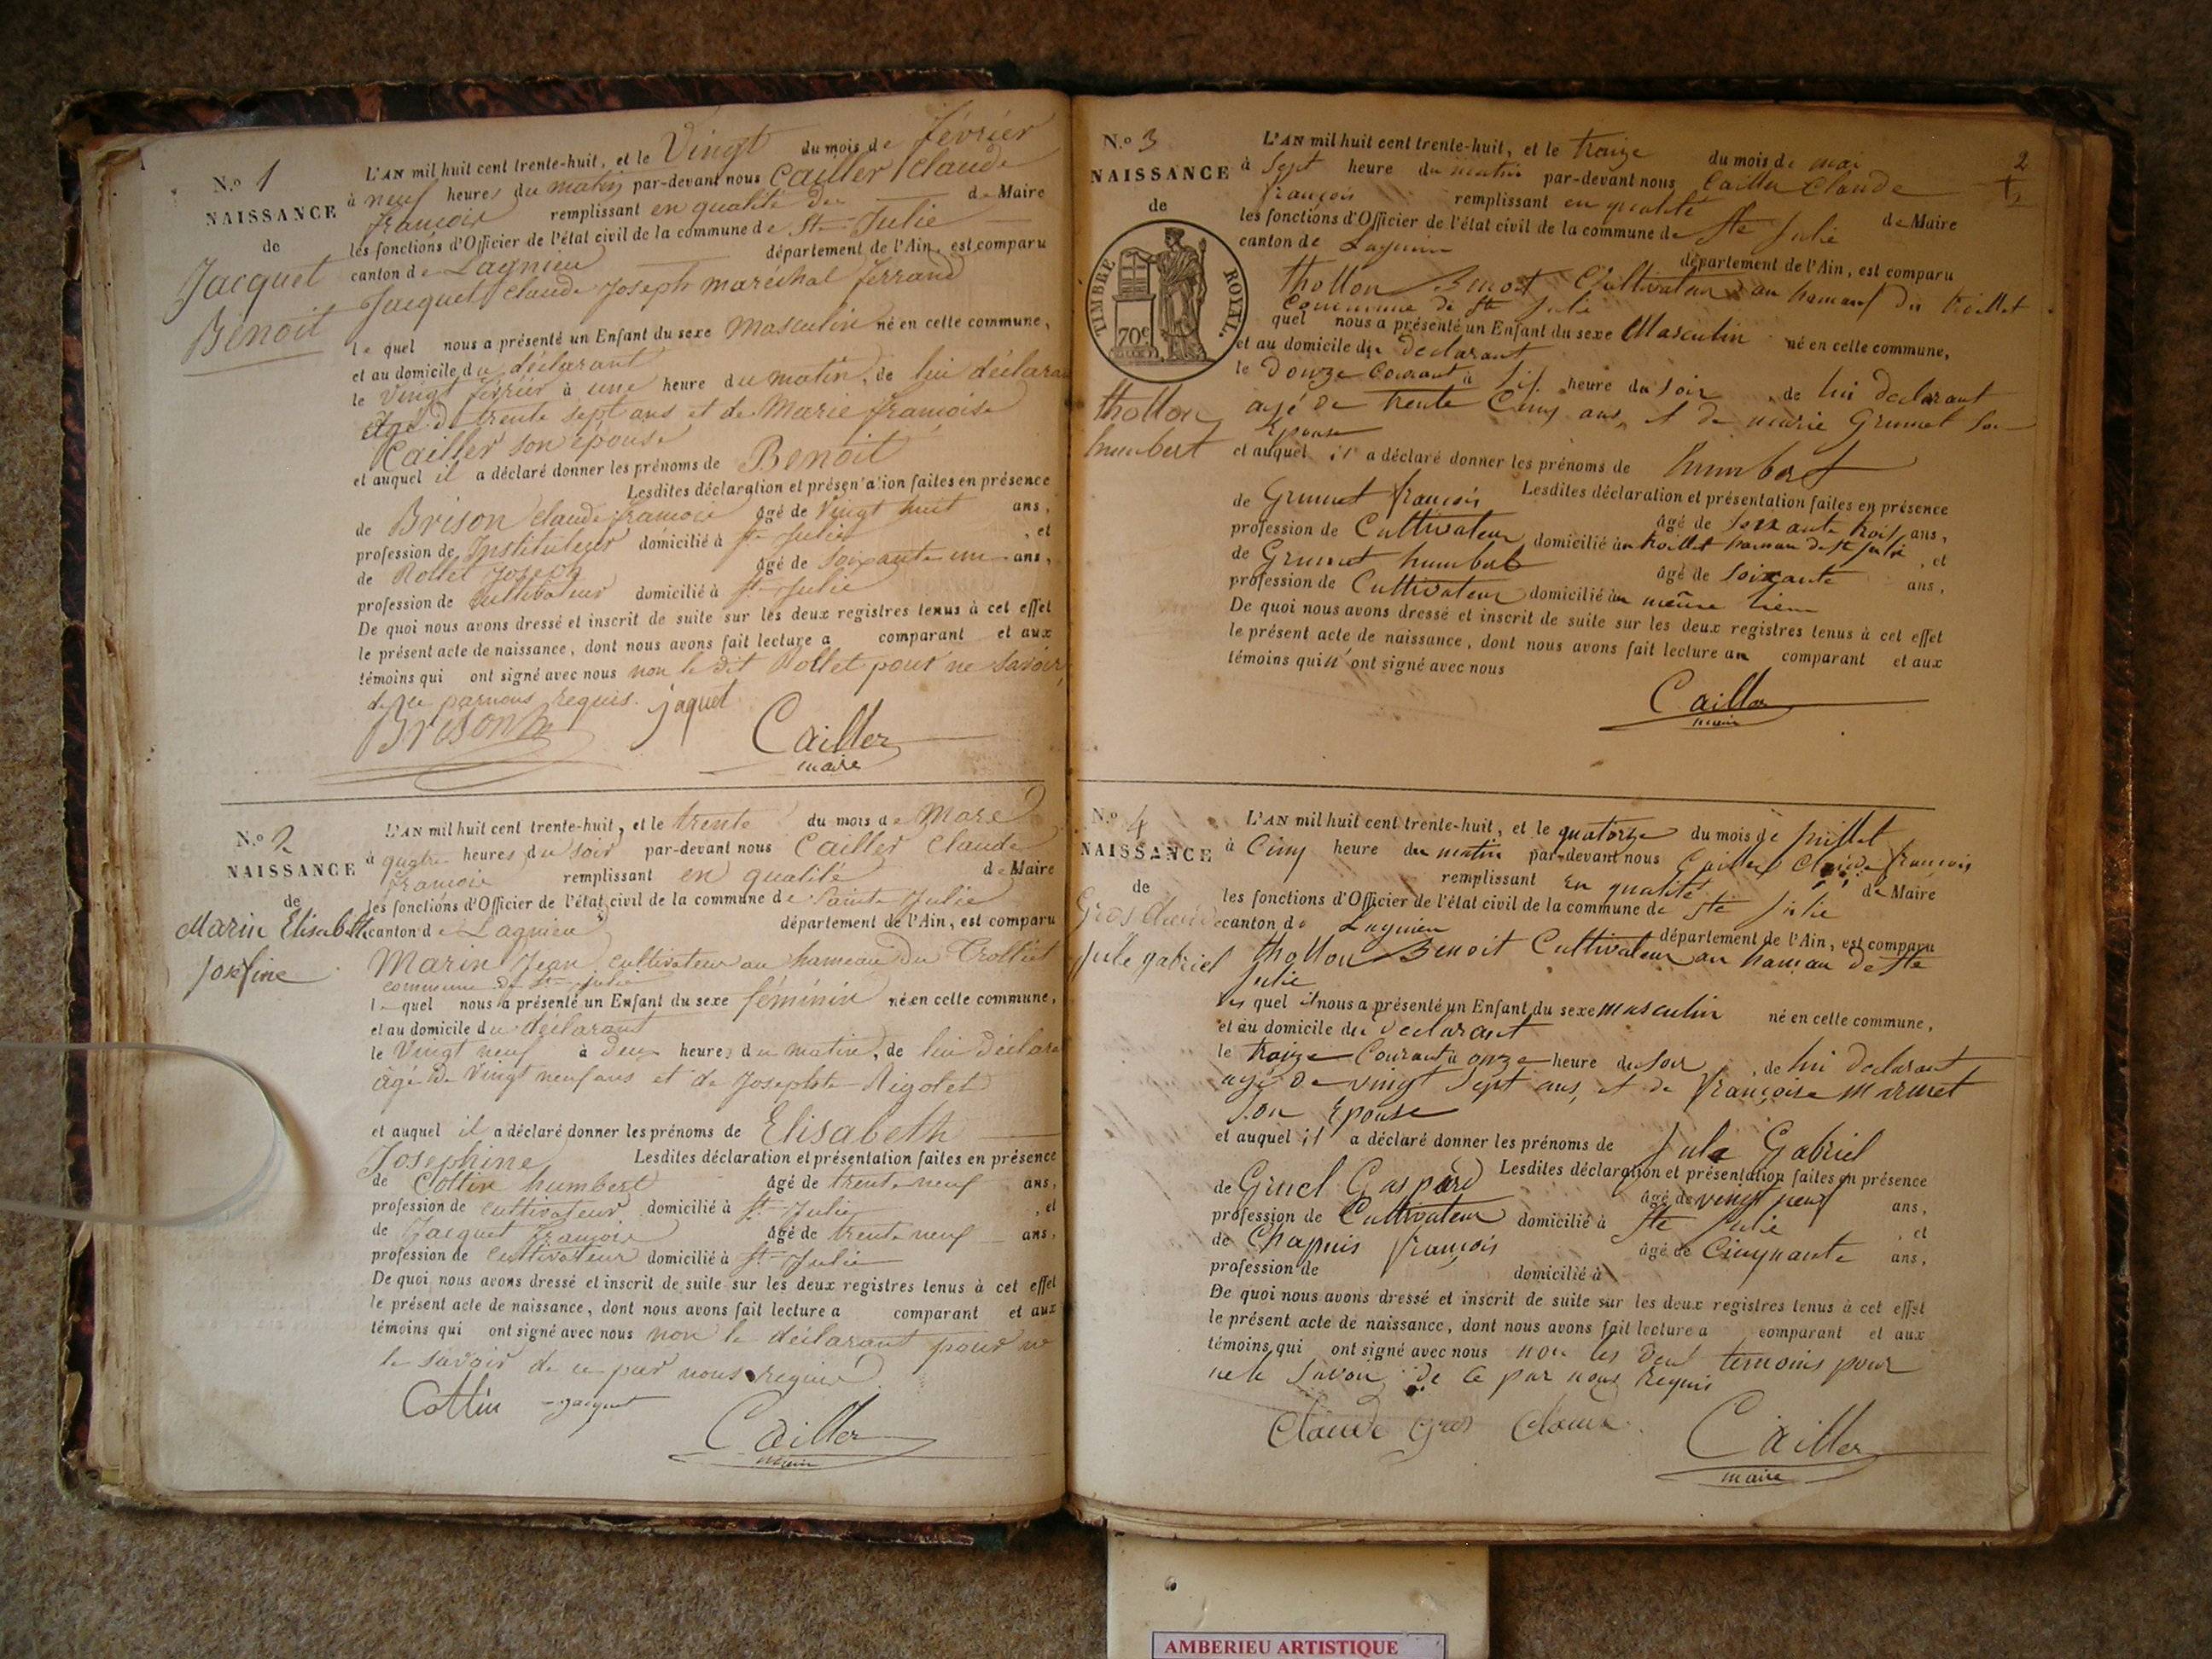 N.º 1
NAISSANCE
de
Jacquet
Benoit
L'AN mil huit cent trente-huit, et le Vingt du mois de février
à neuf heures du matin par-devant nous Cailler Claude
françois remplissant en qualité de Maire
les fonctions d'Officier de l'état civil de la commune de Ste Julie
canton de Lagnieu département de l'Ain, est comparu
Jacquet Claude Joseph maréchal ferrand
le quel nous a présenté un Enfant du sexe Masculin né en cette commune,
et au domicile du déclarant
le Vingt février à une heure du matin, de lui déclarant
âgé de trente sept ans et de Marie françoise
Cailler son épouse
et auquel il a déclaré donner les prénoms de Benoit
Lesdites déclaration et présentation faites en présence
de Brison Claude françois âgé de Vingt huit ans,
profession de Instituteur domicilié à Ste Julie, et
de Rollet Joseph âgé de Soixante un ans,
profession de cultivateur domicilié à Ste Julie
De quoi nous avons dressé et inscrit de suite sur les deux registres tenus à cet effet
le présent acte de naissance, dont nous avons fait lecture a comparant et aux
témoins qui ont signé avec nous non le dit Rollet pour ne savoir
de ce par nous requis. jaquet
Brison Cailler
maire
N.º 2
NAISSANCE
de
Marin Elisabeth
Josefine
L'AN mil huit cent trente-huit, et le trente du mois de Mars
à quatre heures du soir par-devant nous Cailler Claude
françois remplissant en qualité de Maire
les fonctions d'Officier de l'état civil de la commune de Sainte Julie
canton de Lagnieu département de l'Ain, est comparu
Marin Jean cultivateur au hameau du Trolliet
commune de Ste Julie
le quel nous a présenté un Enfant du sexe féminin né en cette commune,
et au domicile du déclarant
le Vingt neuf à deux heures du matin, de lui déclara
âgé de Vingt neuf ans et de Josephte Rigolet
et auquel il a déclaré donner les prénoms de Elisabeth
Josephine Lesdites déclaration et présentation faites en présence
de Cottin humbert âgé de trente neuf ans,
profession de cultivateur domicilié à Ste Julie, et
de Jacquet françois âgé de trente neuf ans,
profession de cultivateur domicilié à Ste Julie
De quoi nous avons dressé et inscrit de suite sur les deux registres tenus à cet effet
le présent acte de naissance, dont nous avons fait lecture a comparant et aux
témoins qui ont signé avec nous non le déclarant pour ne
le savoir de ce par nous requis
Cottin jacquet
Cailler
maire
2
N.º 3
NAISSANCE
de
TIMBRE ROYAL.
70c
thollon
humbert
L'AN mil huit cent trente-huit, et le treize du mois de mai
à Sept heure du matin par-devant nous Cailler Claude
françois remplissant en qualité de Maire
les fonctions d'Officier de l'état civil de la commune de Ste Julie
canton de Lagnieu département de l'Ain, est comparu
thollon Benoit Cultivateur au hameau du trolliet
Commune de Ste Julie
quel nous a présenté un Enfant du sexe Masculin né en cette commune,
et au domicile du declarant
le douze Courant à six heure du soir, de lui declarant
agé de trente Cinq ans, et de marie Grumet son
Epouse
et auquel il a déclaré donner les prénoms de humbert
Lesdites déclaration et présentation faites en présence
de Grumet françois âgé de soixante trois ans,
profession de Cultivateur domicilié au trolliet hameau de Ste Julie, et
de Grumet humbert âgé de soixante ans,
profession de Cultivateur domicilié au même lieu
De quoi nous avons dressé et inscrit de suite sur les deux registres tenus à cet effet
le présent acte de naissance, dont nous avons fait lecture au comparant et aux
témoins qui n'ont signé avec nous
Cailler
maire
N.º 4
NAISSANCE
de
Gros Claude
Jule gabriel
L'AN mil huit cent trente-huit, et le quatorze du mois de juillet
à Cinq heure du matin par-devant nous Cailler Claude françois
remplissant en qualité de Maire
les fonctions d'Officier de l'état civil de la commune de Ste Julie
canton de Lagnieu département de l'Ain, est comparu
thollon Benoit Cultivateur au hameau de Ste
Julie
quel il nous a présenté un Enfant du sexe masculin né en cette commune,
et au domicile du declarant
le treize Courant à onze heure du soir, de lui declarant
agé de vingt sept ans, et de françoise Marmet
son Epouse
et auquel il a déclaré donner les prénoms de Jule Gabriel
Lesdites déclaration et présentation faites en présence
de Gruel Gaspard âgé de vingt neuf ans,
profession de Cultivateur domicilié à Ste Julie, et
de Chapuis françois âgé de Cinquante ans,
profession de domicilié à
De quoi nous avons dressé et inscrit de suite sur les deux registres tenus à cet effet
le présent acte de naissance, dont nous avons fait lecture a comparant et aux
témoins qui ont signé avec nous non les deux temoins pour
ne le savoir de ce par nous requis
Claude gros Claude Cailler
maire
AMBERIEU ARTISTIQUE